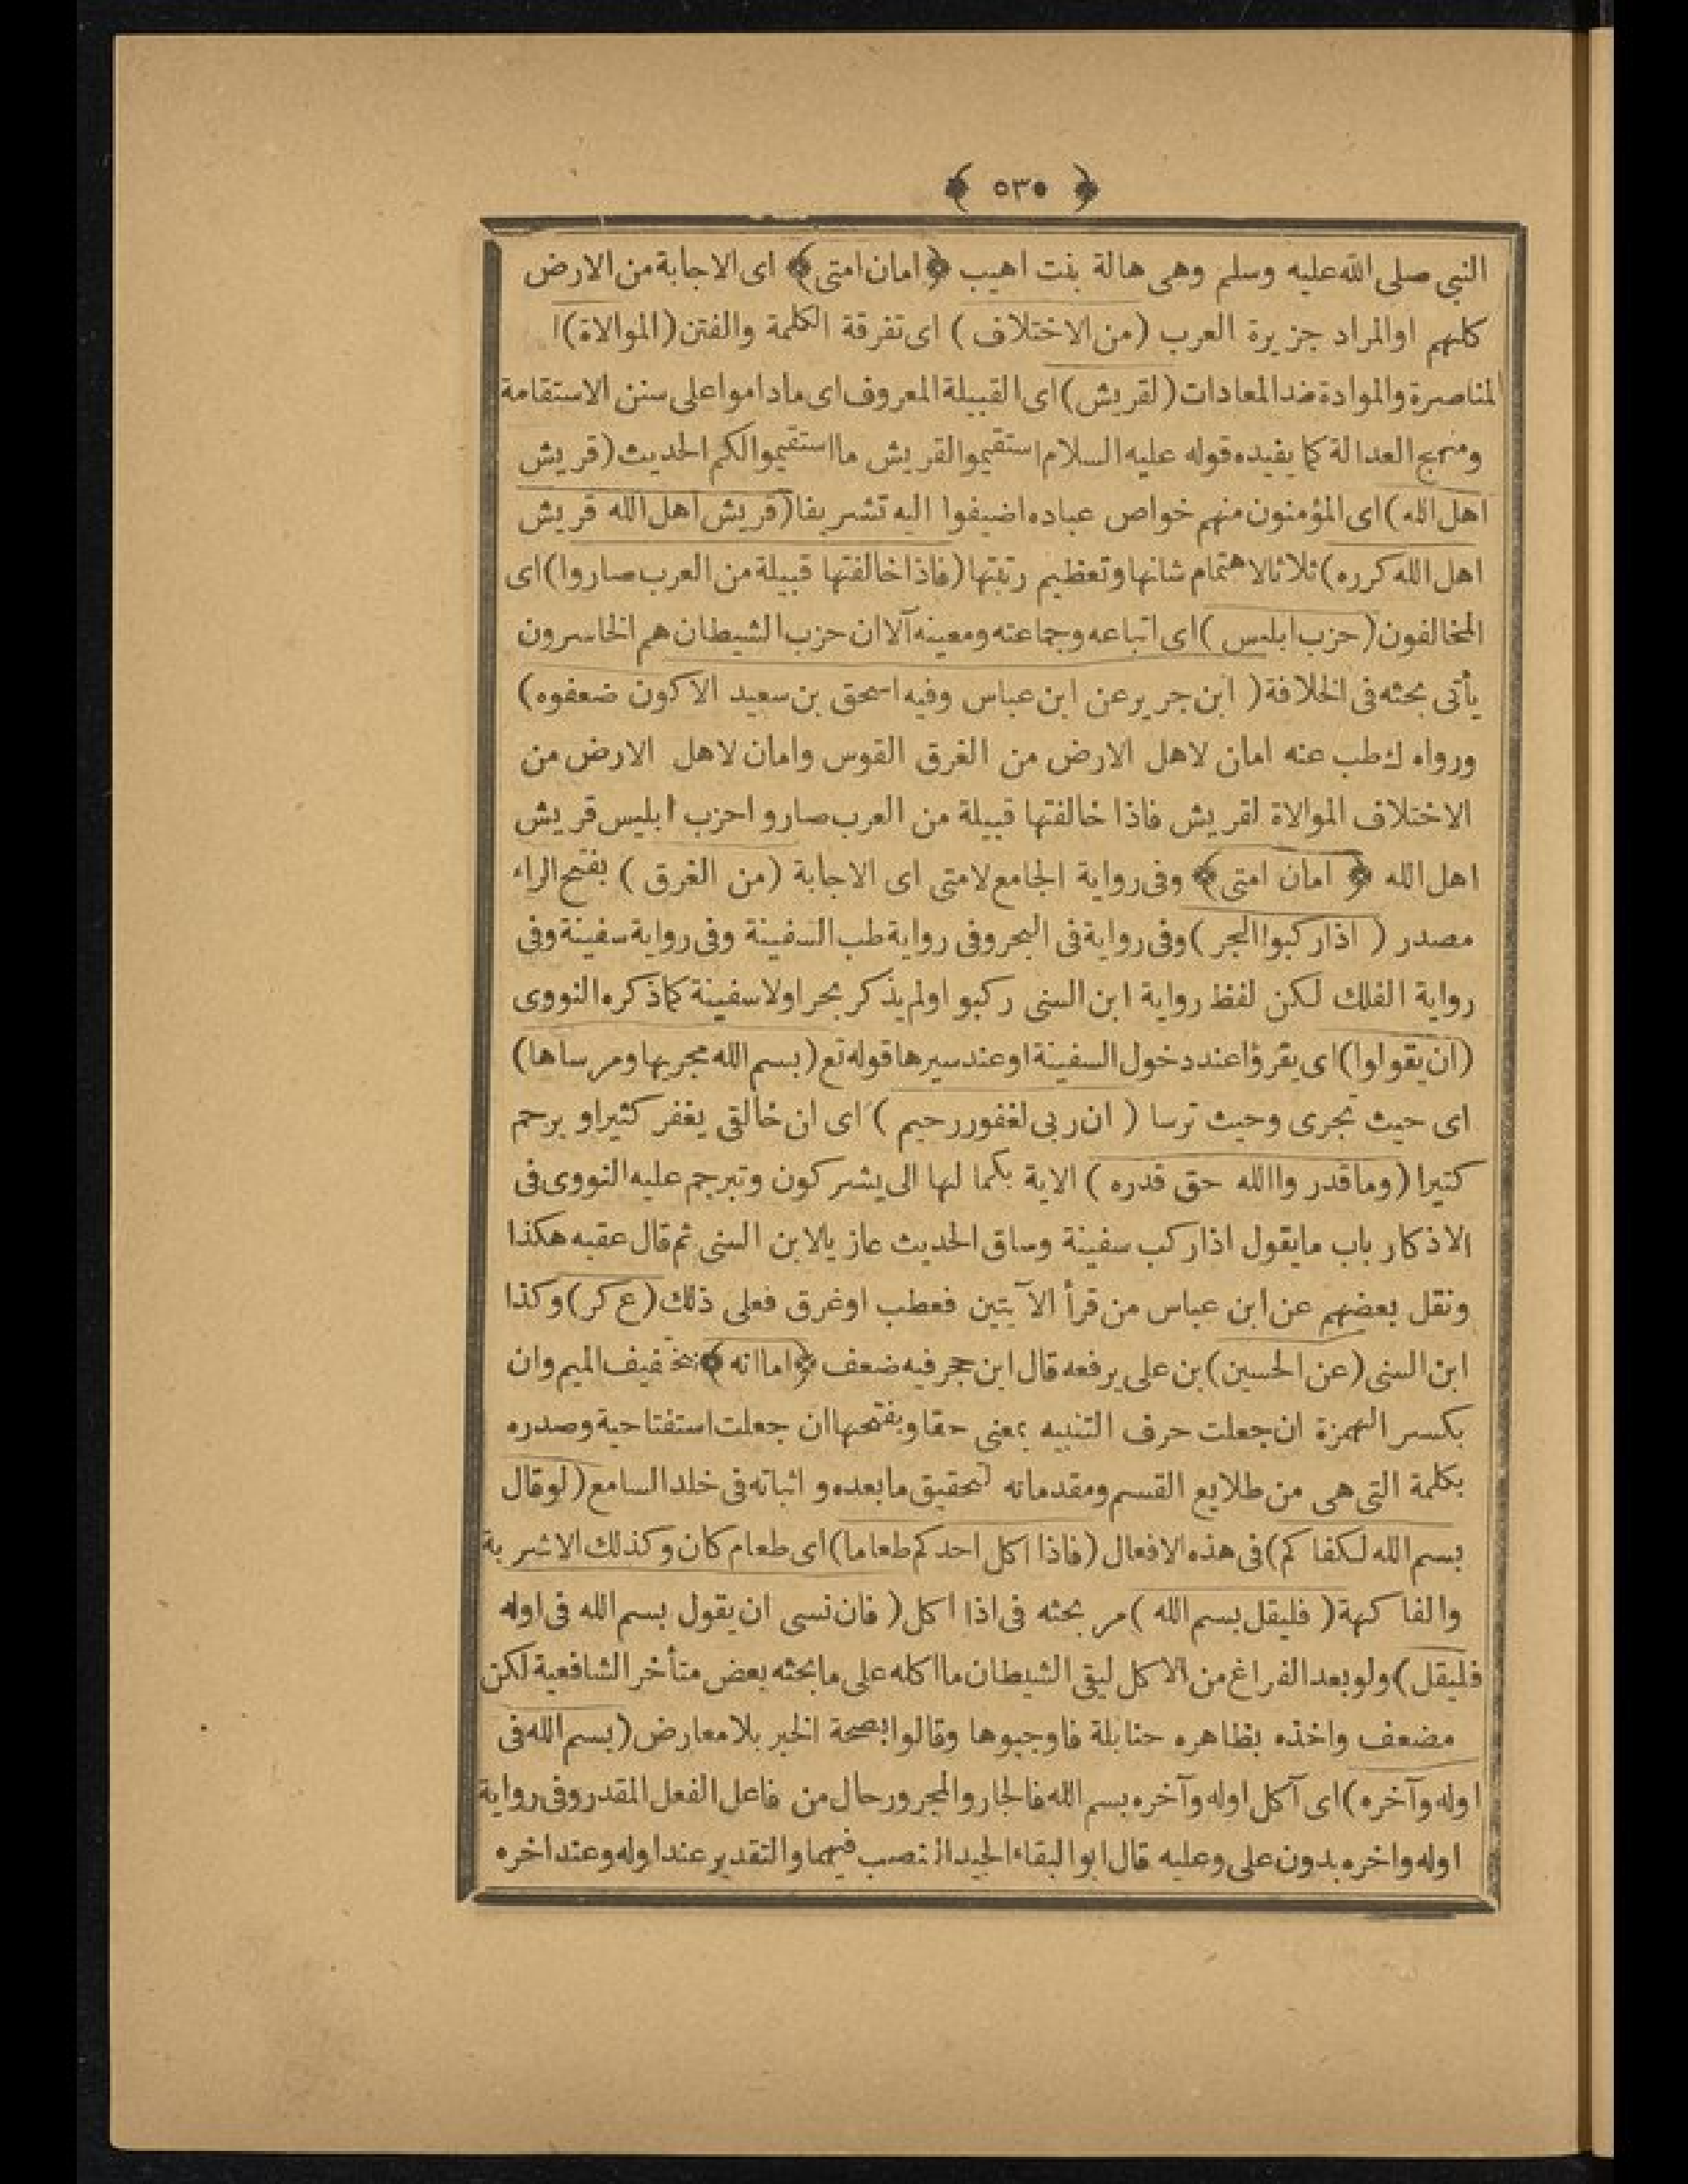 ﴿ ٥٣٥ ﴾
النبى صلى الله عليه وسلم وهى هالة بنت اهيب ﴿ امان امتى ﴾ اى الاجابة من الارض
كلهم اوالمراد جزيرة العرب (من الاختلاف) اى تفرقة الكلمة والفتن (الموالاة) ا
لمناصرة والموادة ضد المعادات (لقريش) اى القبيلة المعروف اى ماداموا على سنن الاستقامة
ومنهج العدالة كما يفيده قوله عليه السلام استقيموا لقريش مااستقيموا لكم الحديث (قريش
اهل الله) اى المؤمنون منهم خواص عباده اضيفوا اليه تشريفا (قريش اهل الله قريش
اهل الله كرره) ثلاثا لاهتمام شانها وتعظيم رتبتها (فاذا خالفتها قبيلة من العرب صاروا) اى
المخالفون (حزب ابليس) اى اتباعه وجماعته ومعينه آلا ان حزب الشيطان هم الخاسرون
يأتى بحثه فى الخلافة (ابن جرير عن ابن عباس وفيه اسحق بن سعيد الاكون ضعفوه)
ورواه ك طب عنه امان لاهل الارض من الغرق القوس وامان لاهل الارض من
الاختلاف الموالاة لقريش فاذا خالفتها قبيلة من العرب صاروا حزب ابليس قريش
اهل الله ﴿ امان امتى ﴾ وفى رواية الجامع لامتى اى الاجابة (من الغرق) بفتح الراء
مصدر (اذا ركبوا البحر) وفى رواية فى البحر وفى رواية طب السفينة وفى رواية سفينة وفى
رواية الفلك لكن لفظ رواية ابن السنى ركبوا ولم يذكر بحرا ولاسفينة كماذكره النووى
(ان يقولوا) اى يقرؤا عند دخول السفينة اوعند سيرها قوله تع (بسم الله مجريها ومرساها)
اى حيث تجرى وحيث ترسا (ان ربى لغفور رحيم) اى ان خالقى يغفر كثيرا و يرحم
كتيرا (وماقدر واالله حق قدره) الاية بكما لها الى يشركون وتبرجم عليه النووى فى
الاذكار باب مايقول اذا ركب سفينة وساق الحديث عاز يالابن السنى ثم قال عقبه هكذا
ونقل بعضهم عن ابن عباس من قرأ الآيتين فعطب اوغرق فعلى ذلك (ع كر) وكذا
ابن السنى (عن الحسين) بن على يرفعه قال ابن حجر فيه ضعف ﴿ اماانه ﴾ بتخفيف الميم وان
بكسر الهمزة ان جعلت حرف التنبيه بمعنى حقا وبفتحها ان جعلت استفتاحية وصدره
بكلمة التى هى من طلايع القسم ومقدماته لتحقيق مابعده و اثباته فى خلد السامع (لوقال
بسم الله لكفاكم) فى هذه الافعال (فاذا اكل احدكم طعاما) اى طعام كان وكذلك الاشربة
والفاكهة (فليقل بسم الله) مر بحثه فى اذا اكل (فان نسى ان يقول بسم الله فى اوله
فليقل) ولو بعد الفراغ من الاكل ليقى الشيطان مااكله على مابحثه بعض متأخر الشافعية لكن
مضعف واخذه بظاهره حنابلة فاوجبوها وقالوا بصحة الخبر بلا معارض (بسم الله فى
اوله وآخره) اى آكل اوله وآخره بسم الله فالجار والمجرور حال من فاعل الفعل المقدر وفى رواية
اوله واخره بدون على وعليه قال ابوالبقاء الجيد النصب فيهما والتقدير عند اوله وعند اخره